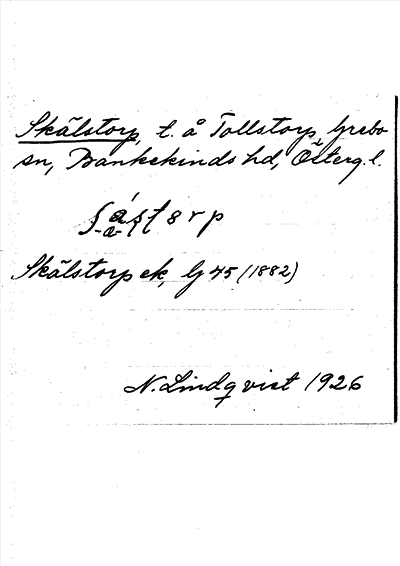 Skälstorp, t. å Tollstorp, Grebo
sn, Bankekinds hd, Österg. l.
Skälstorp ek, Gj 45 (1882)
N. Lindqvist 1926